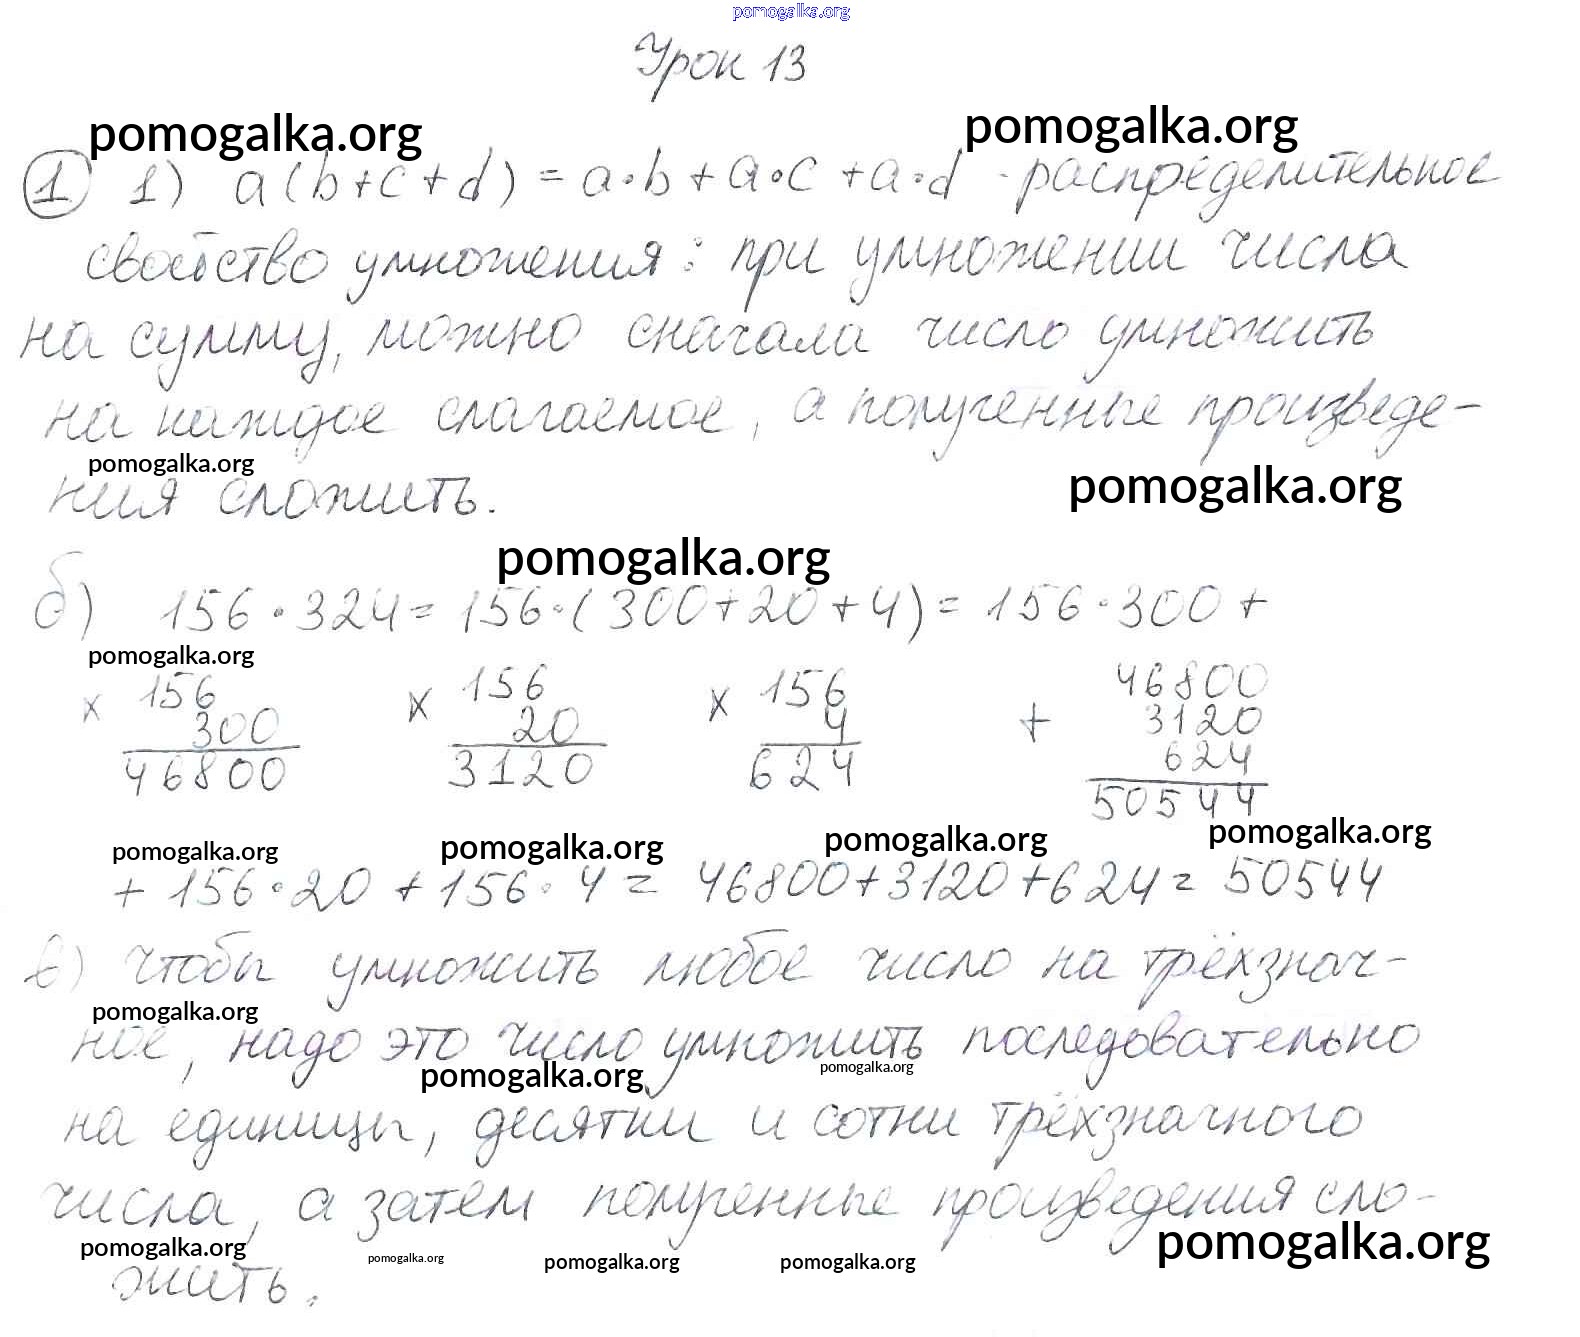 pomogalka.org
Урок 13
pomogalka.org pomogalka.org
1 1) a(b+c+d) = a·b+a·c+a·d - распределительное
свойство умножения: при умножении числа
на сумму, можно сначала число умножить
на каждое слагаемое, а полученные произведе-
pomogalka.org
ния сложить.
pomogalka.org
pomogalka.org
б) 156·324=156·(300+20+4)=156·300+
pomogalka.org
× 156 × 156 × 156 46800
300 20 4 + 3120
46800 3120 624 624
50544
pomogalka.org pomogalka.org pomogalka.org pomogalka.org
+ 156·20+156·4= 46800+3120+624=50544
в) чтобы умножить любое число на трёхзнач-
pomogalka.org
ное, надо это число умножить последовательно
pomogalka.org pomogalka.org
на единицы, десятки и сотни трёхзначного
числа, а затем полученные произведения сло-
pomogalka.org pomogalka.org pomogalka.org pomogalka.org pomogalka.org
жить.